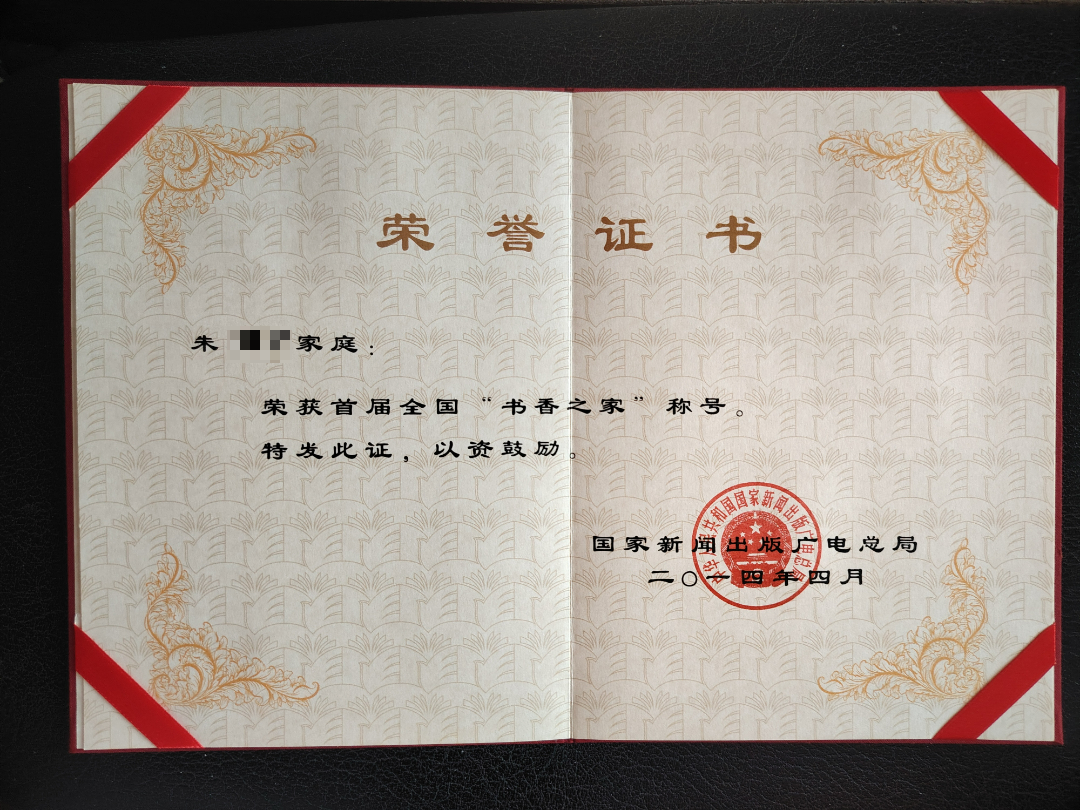 荣誉证书
朱 家庭：
荣获首届全国“书香之家”称号。
特发此证，以资鼓励。
国家新闻出版广电总局
二〇一四年四月
中华人民共和国国家新闻出版广电总局